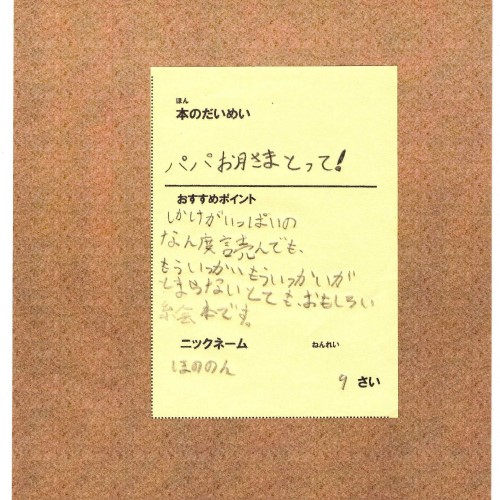 ほん
本のだいめい
パパお月さまとって!
おすすめポイント
しかけがいっぱいの
なん度読んでも、
もういっかいもういっかいが
とまらないとても、おもしろい
絵本です。
ニックネーム ねんれい
ほののん 9 さい